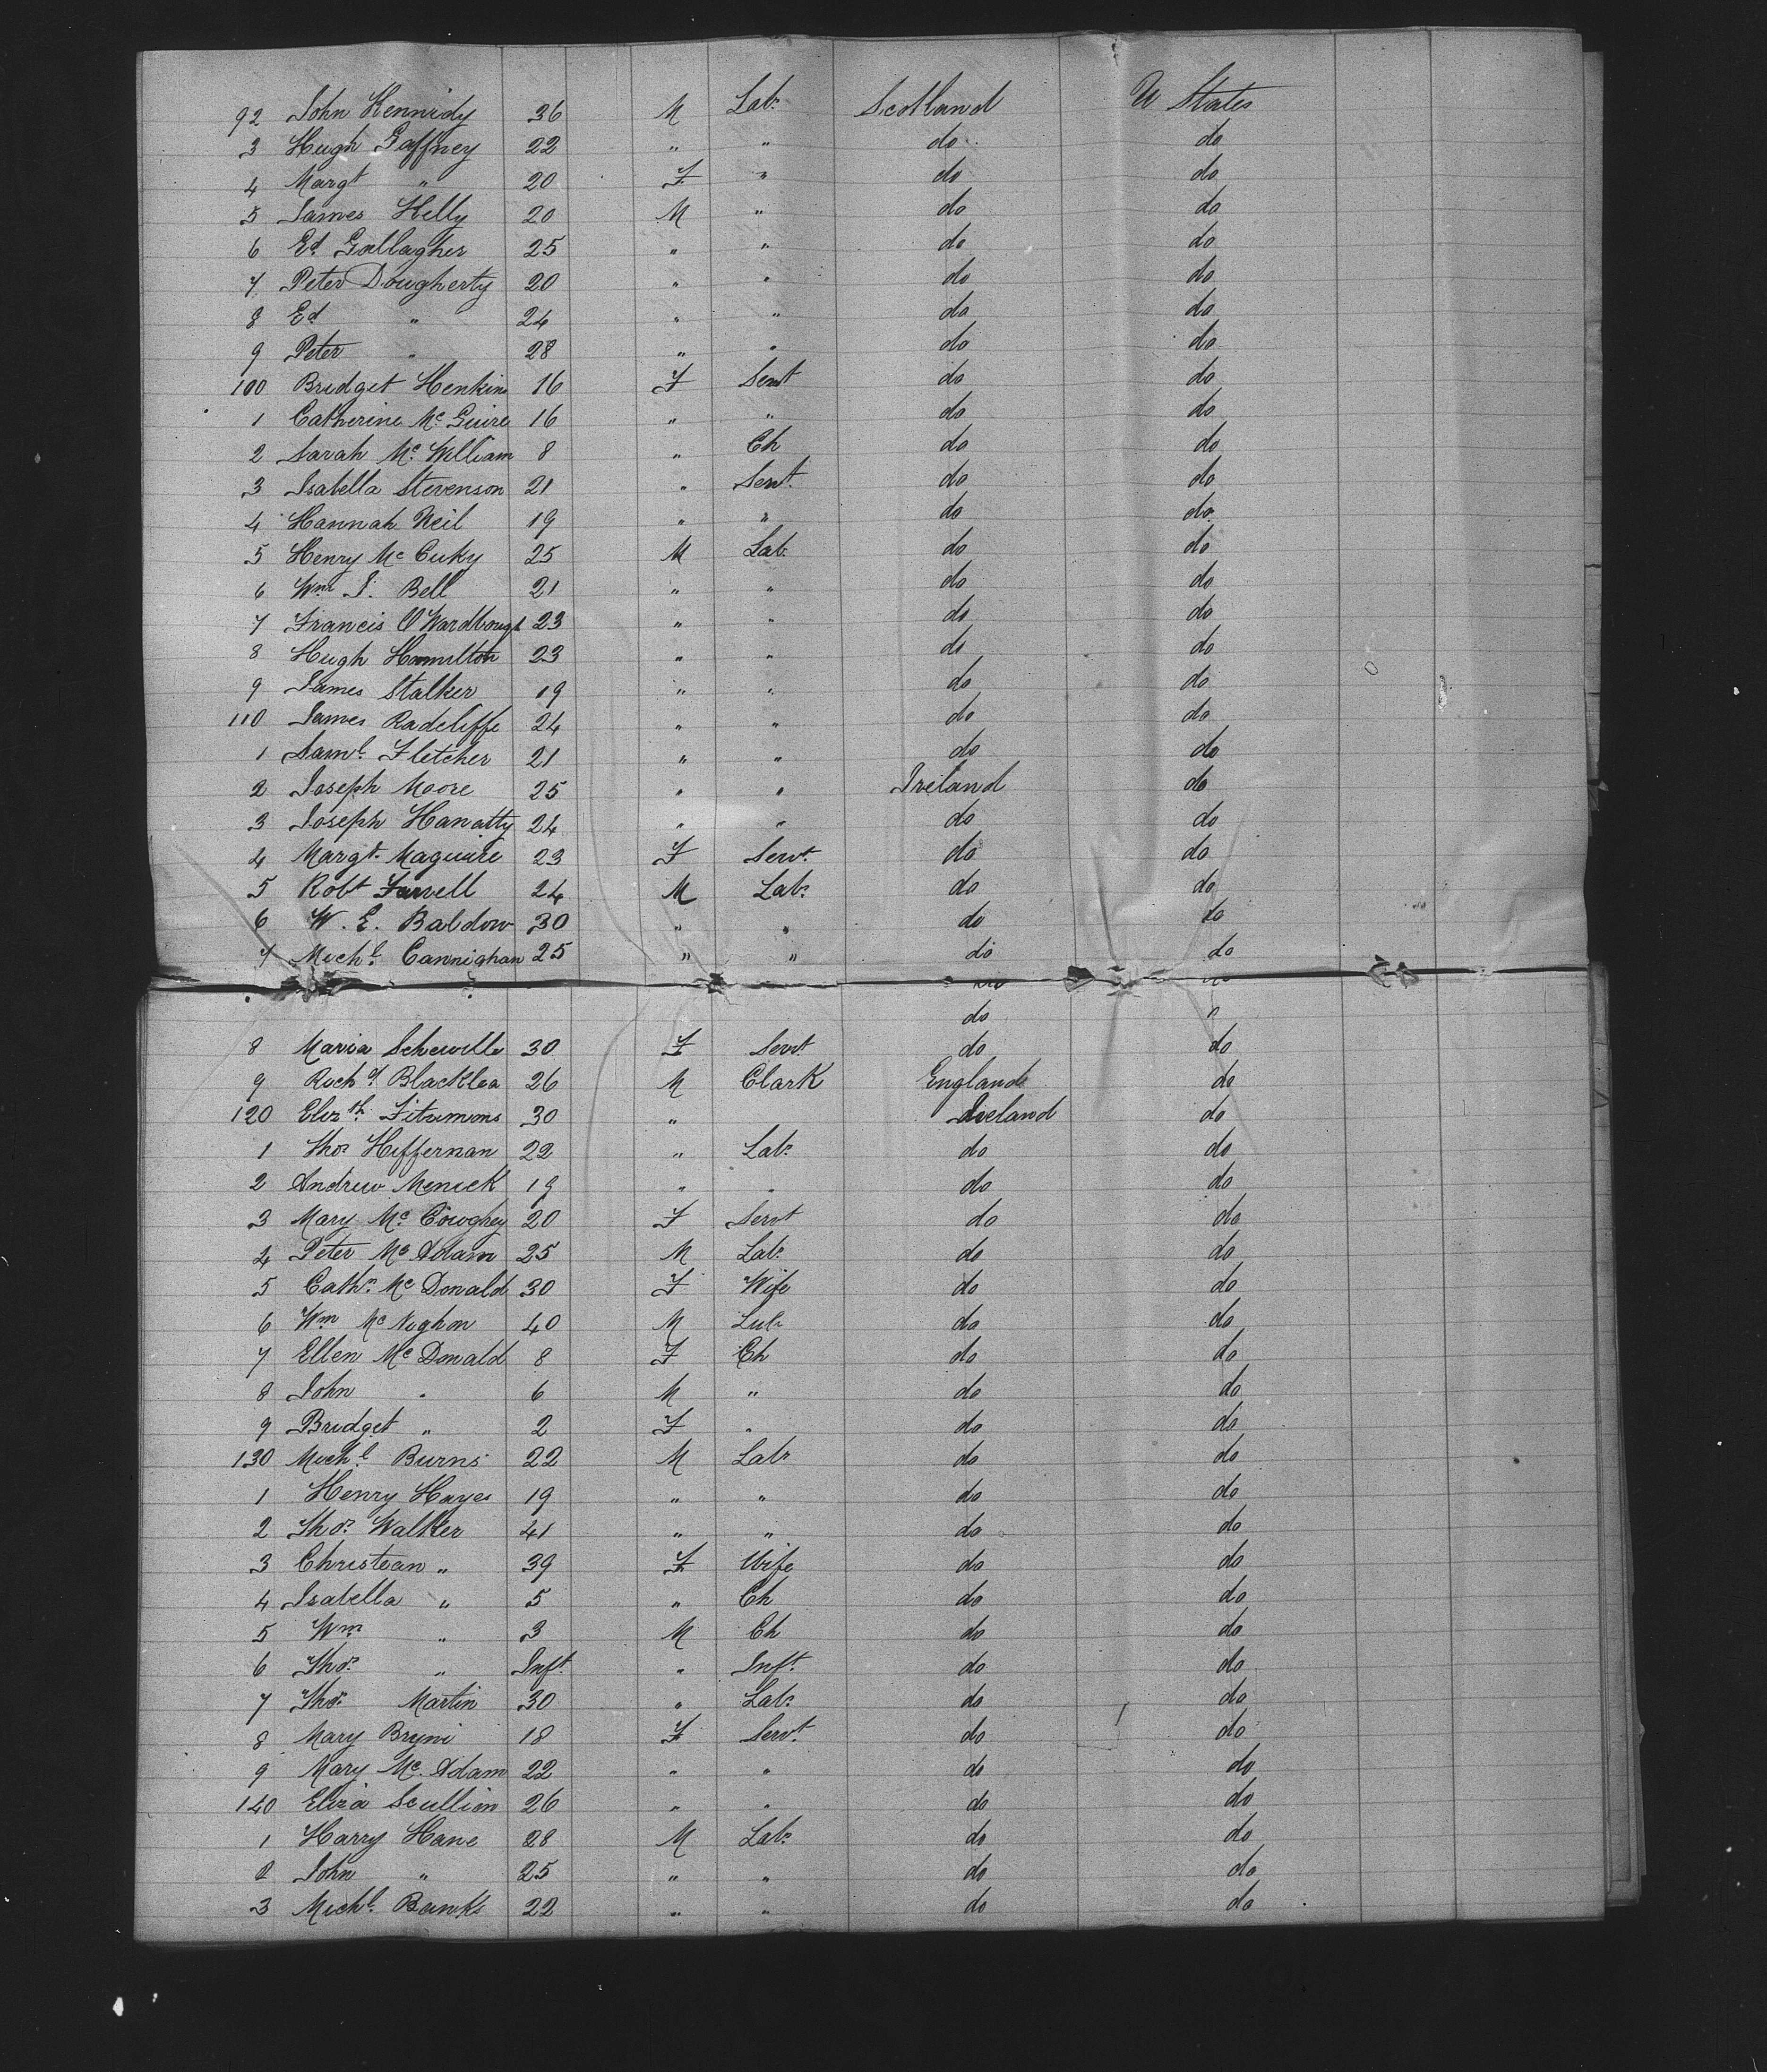 92 John Kennidy 36 M Labr Scotland U States
3 Hugh Gaffney 22 " " do do
4 Margt " 20 F " do do
5 James Kelly 20 M " do do
6 Ed Gallagher 25 " " do do
7 Peter Dougherty 20 " " do do
8 Ed " 24 " " do do
9 Peter " 28 " " do do
100 Bridget Henkins 16 F Servt do do
1 Catherine McGuire 16 " " do do
2 Sarah McWilliam 8 " Ch do do
3 Isabella Stevenson 21 " Servt do do
4 Hannah Neil 19 " " do do
5 Henry Mc 25 M Labr do do
6 Wm J. Bell 21 " " do do
7 Francis 23 " " do do
8 Hugh Hamilton 23 " " do do
9 James Stalker 19 " " do do
110 James Radcliffe 24 " " do do
1 Saml Fletcher 21 " " do do
2 Joseph Moore 25 " " Ireland do
3 Joseph Hanatty 24 " " do do
4 Margt Maguire 23 F Servt do do
5 Robt 24 M Labr do do
6 W. E. Baldow 30 " " do do
7 Michl Cannighan 25 " " do do
do
8 Maria 30 F Servt do do
9 Richd Blacklea 26 M Clark England do
120 Elizth Fitsimmons 30 " Ireland do
1 Thos Heffernan 22 " Labr do do
2 Andrew 19 " " do do
3 Mary McCoughey 20 F Servt do do
4 Peter McAdam 25 M Labr do do
5 Cathn McDonald 30 F Wife do do
6 Wm McNighon 40 M Labr do do
7 Ellen McDonald 8 F Ch do do
8 John " 6 M " do do
9 Bridget " 2 F " do do
130 Michl Burns 22 M Labr do do
1 Henry Hayes 19 " " do do
2 Thos Walker 41 " " do do
3 Christean " 39 F Wife do do
4 Isabella " 5 " Ch do do
5 Wm " 3 M Ch do do
6 Thos " Inft " Inft do do
7 Thos Martin 30 " Labr do do
8 Mary Bryni 18 F Servt do do
9 Mary McAdam 22 " " do do
140 Eliza Scullion 26 " " do do
1 Harry Hane 28 M Labr do do
2 John " 25 " " do do
3 Michl Banks 22 " " do do